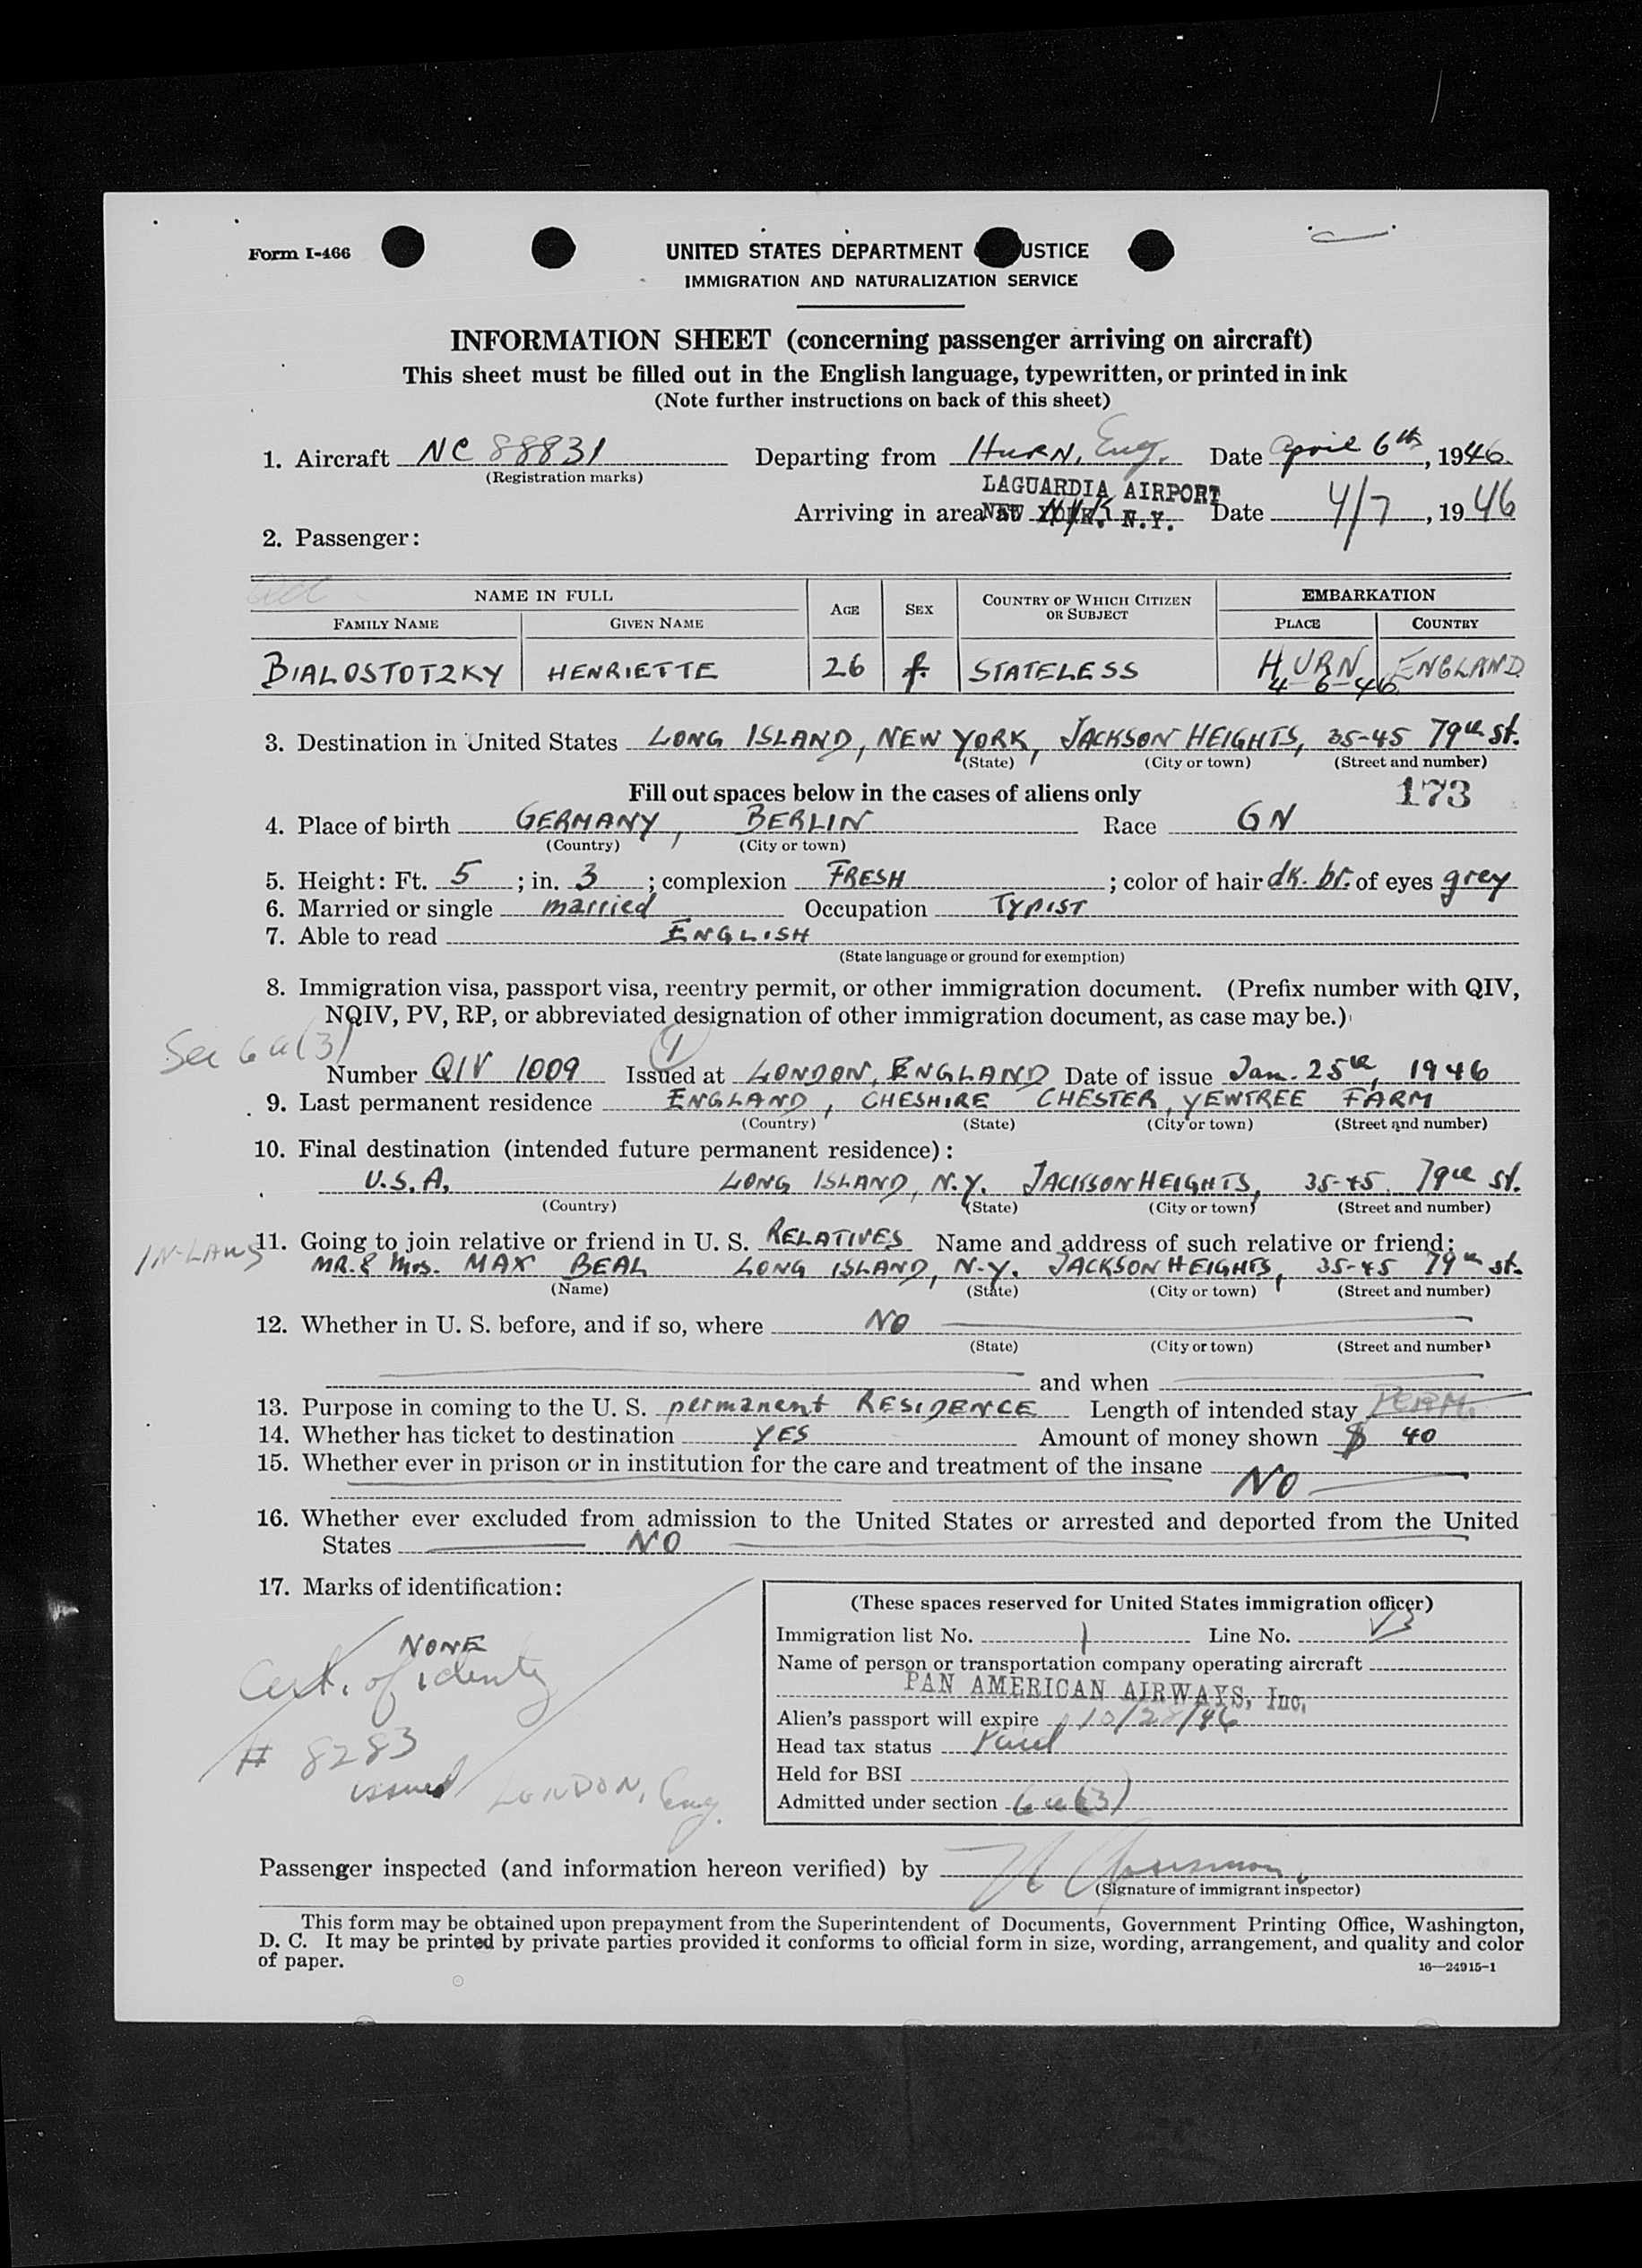 Form I-466
UNITED STATES DEPARTMENT USTICE
IMMIGRATION AND NATURALIZATION SERVICE
INFORMATION SHEET (concerning passenger arriving on aircraft)
This sheet must be filled out in the English language, typewritten, or printed in ink
(Note further instructions on back of this sheet)
1. Aircraft NC 88831 Departing from HURN, Eng. Date April 6th, 1946.
(Registration marks)
LAGUARDIA AIRPORT
Arriving in area at NEW YORK, N.Y. Date 4/7, 1946
2. Passenger:
NAME IN FULL AGE SEX COUNTRY OF WHICH CITIZEN OR SUBJECT EMBARKATION
FAMILY NAME GIVEN NAME PLACE COUNTRY
BIALOSTOTZKY HENRIETTE 26 f. STATELESS HURN ENGLAND
4-6-46
3. Destination in United States LONG ISLAND, NEW YORK, JACKSON HEIGHTS, 35-45 79th St.
(State) (City or town) (Street and number)
Fill out spaces below in the cases of aliens only 173
4. Place of birth GERMANY, BERLIN Race GN
(Country) (City or town)
5. Height: Ft. 5; in. 3; complexion FRESH; color of hair dk. br. of eyes grey
6. Married or single married Occupation TYPIST
7. Able to read ENGLISH
(State language or ground for exemption)
8. Immigration visa, passport visa, reentry permit, or other immigration document. (Prefix number with QIV,
NQIV, PV, RP, or abbreviated designation of other immigration document, as case may be.)
Sec 6a(3) 1
Number QIV 1009 Issued at LONDON, ENGLAND Date of issue Jan. 25th, 1946
9. Last permanent residence ENGLAND, CHESHIRE CHESTER, YEWTREE FARM
(Country) (State) (City or town) (Street and number)
10. Final destination (intended future permanent residence):
U.S.A. LONG ISLAND, N.Y. JACKSON HEIGHTS, 35-45. 79th St.
(Country) (State) (City or town) (Street and number)
IN-LAWS 11. Going to join relative or friend in U. S. RELATIVES Name and address of such relative or friend:
MR. & Mrs. MAX BEAL LONG ISLAND, N.Y. JACKSON HEIGHTS, 35-45 79th St.
(Name) (State) (City or town) (Street and number)
12. Whether in U. S. before, and if so, where NO
(State) (City or town) (Street and number)
and when
13. Purpose in coming to the U. S. permanent RESIDENCE Length of intended stay PERM.
14. Whether has ticket to destination YES Amount of money shown $ 40
15. Whether ever in prison or in institution for the care and treatment of the insane NO
16. Whether ever excluded from admission to the United States or arrested and deported from the United
States NO
17. Marks of identification:
NONE
Cert. of identy
# 8283
issued LONDON, Eng.
(These spaces reserved for United States immigration officer)
Immigration list No. 1 Line No.
Name of person or transportation company operating aircraft
PAN AMERICAN AIRWAYS, Inc.
Alien's passport will expire 10/28/46
Head tax status Paid
Held for BSI
Admitted under section 6a(3)
Passenger inspected (and information hereon verified) by
(Signature of immigrant inspector)
This form may be obtained upon prepayment from the Superintendent of Documents, Government Printing Office, Washington,
D. C. It may be printed by private parties provided it conforms to official form in size, wording, arrangement, and quality and color
of paper.
16—24915-1